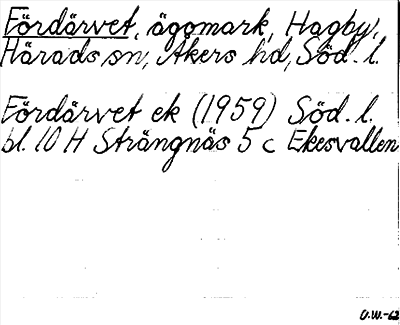 Fördärvet, äggmark, Hagby,
Härads sn, Åkers hd, Söd. l.
Fördärvet ek (1959) Söd. l.
bl. 10 H Strängnäs 5 c Ekesvallen
O.W.-62